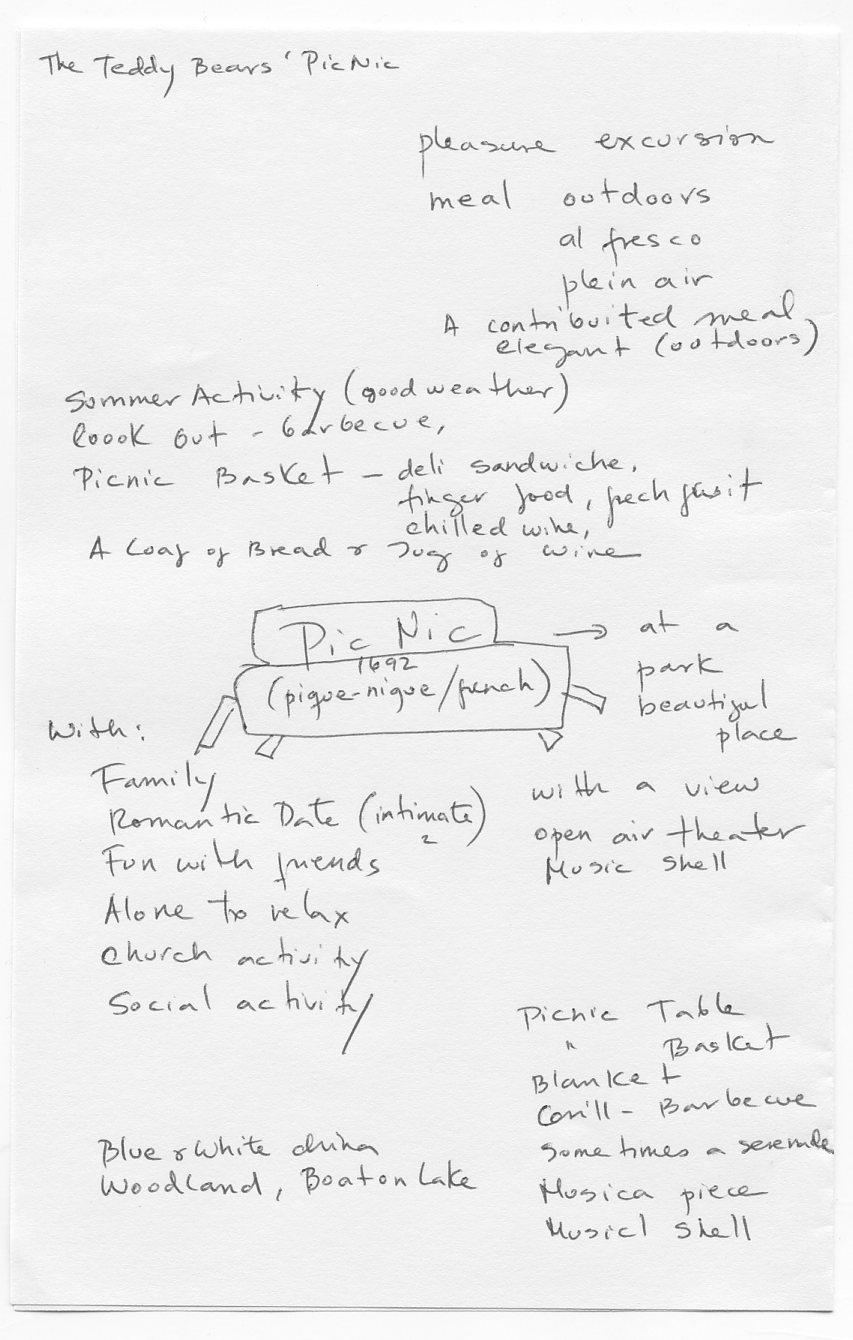 The Teddy Bears' PicNic
pleasure excursion
meal outdoors
al fresco
plein air
A contribuited meal,
elegant (outdoors)
Sommer Activity (good weather)
Coook Out - barbecue,
Picnic Basket - deli sandwiche,
finger food, frech fruit
chilled wine,
A Loaf of Bread & Jug of wine
Pic Nic
1692
(pique-nique/french)
→ at a
park
beautiful
place
with a view
open air theater
Music Shell
With:
Family
Romantic Date (intimate)
2
Fun with friends
Alone to relax
Church activity
Social activity
Picnic Table
" Basket
Blanket
Grill - Barbecue
Sometimes a serenade
Musica piece
Musicl shell
Blue & White china
Woodland, Boat on Lake